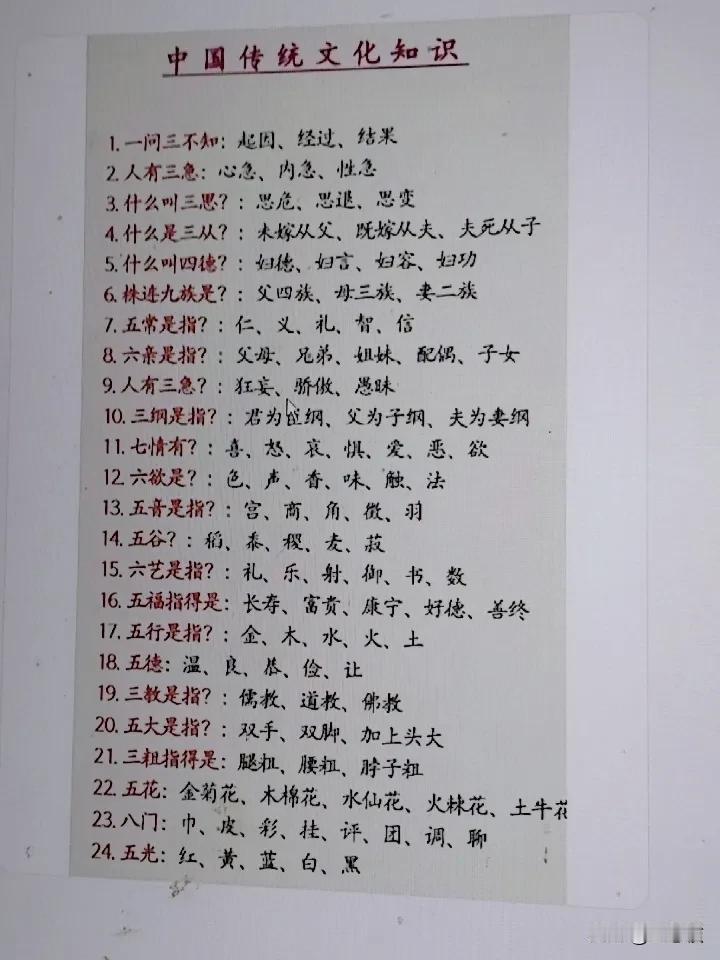 中国传统文化知识
1.一问三不知：起因、经过、结果
2.人有三急：心急、内急、性急
3.什么叫三思？：思危、思退、思变
4.什么是三从？：未嫁从父、既嫁从夫、夫死从子
5.什么叫四德？：妇德、妇言、妇容、妇功
6.株连九族是？：父四族、母三族、妻二族
7.五常是指？：仁、义、礼、智、信
8.六亲是指？：父母、兄弟、姐妹、配偶、子女
9.人有三急？：狂妄、骄傲、愚昧
10.三纲是指？：君为臣纲、父为子纲、夫为妻纲
11.七情有？：喜、怒、哀、惧、爱、恶、欲
12.六欲是？：色、声、香、味、触、法
13.五音是指？：宫、商、角、徵、羽
14.五谷？：稻、黍、稷、麦、菽
15.六艺是指？：礼、乐、射、御、书、数
16.五福指得是：长寿、富贵、康宁、好德、善终
17.五行是指？：金、木、水、火、土
18.五德：温、良、恭、俭、让
19.三教是指？：儒教、道教、佛教
20.五大是指？：双手、双脚、加上头大
21.三粗指得是：腿粗、腰粗、脖子粗
22.五花：金菊花、木棉花、水仙花、火棘花、土牛花
23.八门：巾、皮、彩、挂、评、团、调、聊
24.五光：红、黄、蓝、白、黑